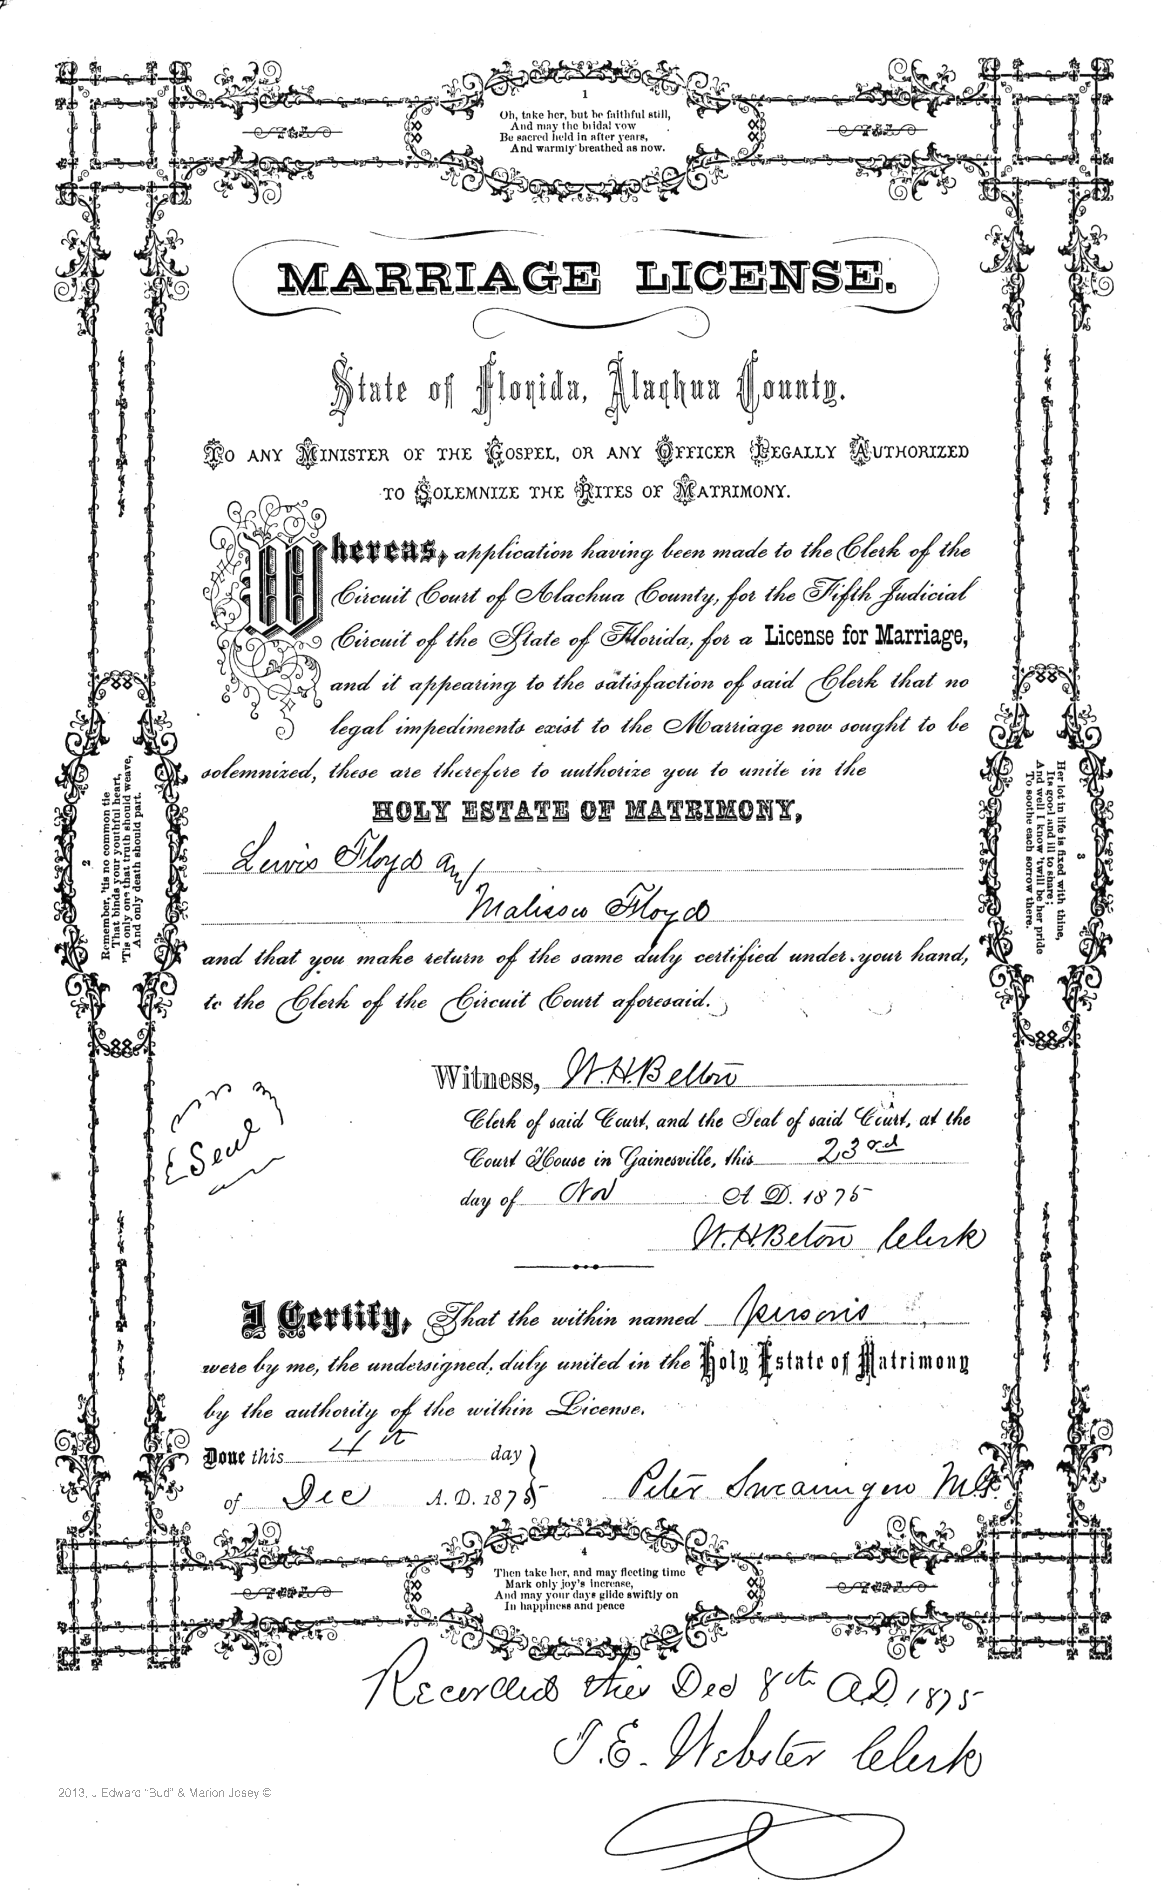 1
Oh, take her, but be faithful still,
And may the bridal vow
Be sacred held in after years,
And warmly breathed as now.
MARRIAGE LICENSE.
State of Florida, Alachua County.
TO ANY MINISTER OF THE GOSPEL, OR ANY OFFICER LEGALLY AUTHORIZED
TO SOLEMNIZE THE RITES OF MATRIMONY.
Whereas, application having been made to the Clerk of the
Circuit Court of Alachua County, for the Fifth Judicial
Circuit of the State of Florida, for a License for Marriage,
and it appearing to the satisfaction of said Clerk that no
legal impediments exist to the Marriage now sought to be
solemnized, these are therefore to authorize you to unite in the
HOLY ESTATE OF MATRIMONY,
Lewis Floyd and
Malissa Floyd
and that you make return of the same duly certified under your hand,
to the Clerk of the Circuit Court aforesaid.
2
Remember, 'tis no common tie
That binds your youthful heart,
'Tis only one that truth should weave,
And only death should part.
3
Her lot in life is fixed with thine,
Its good and ill to share;
And well I know 'twill be her pride
To soothe each sorrow there.
Witness, W. H. Belton
Clerk of said Court, and the Seal of said Court, at the
Court House in Gainesville, this 23rd
day of Nov A. D. 1875
Seal
W. H. Belton Clerk
I Certify, That the within named persons
were by me, the undersigned, duly united in the Holy Estate of Matrimony
by the authority of the within License.
Done this 4th day
of Dec A. D. 1875
Peter Swearingen M.G.
4
Then take her, and may fleeting time
Mark only joy's increase,
And may your days glide swiftly on
In happiness and peace
Recorded this Dec 8th A.D. 1875
J. E. Webster Clerk
2013, J Edward "Bud" & Marion Josey ©